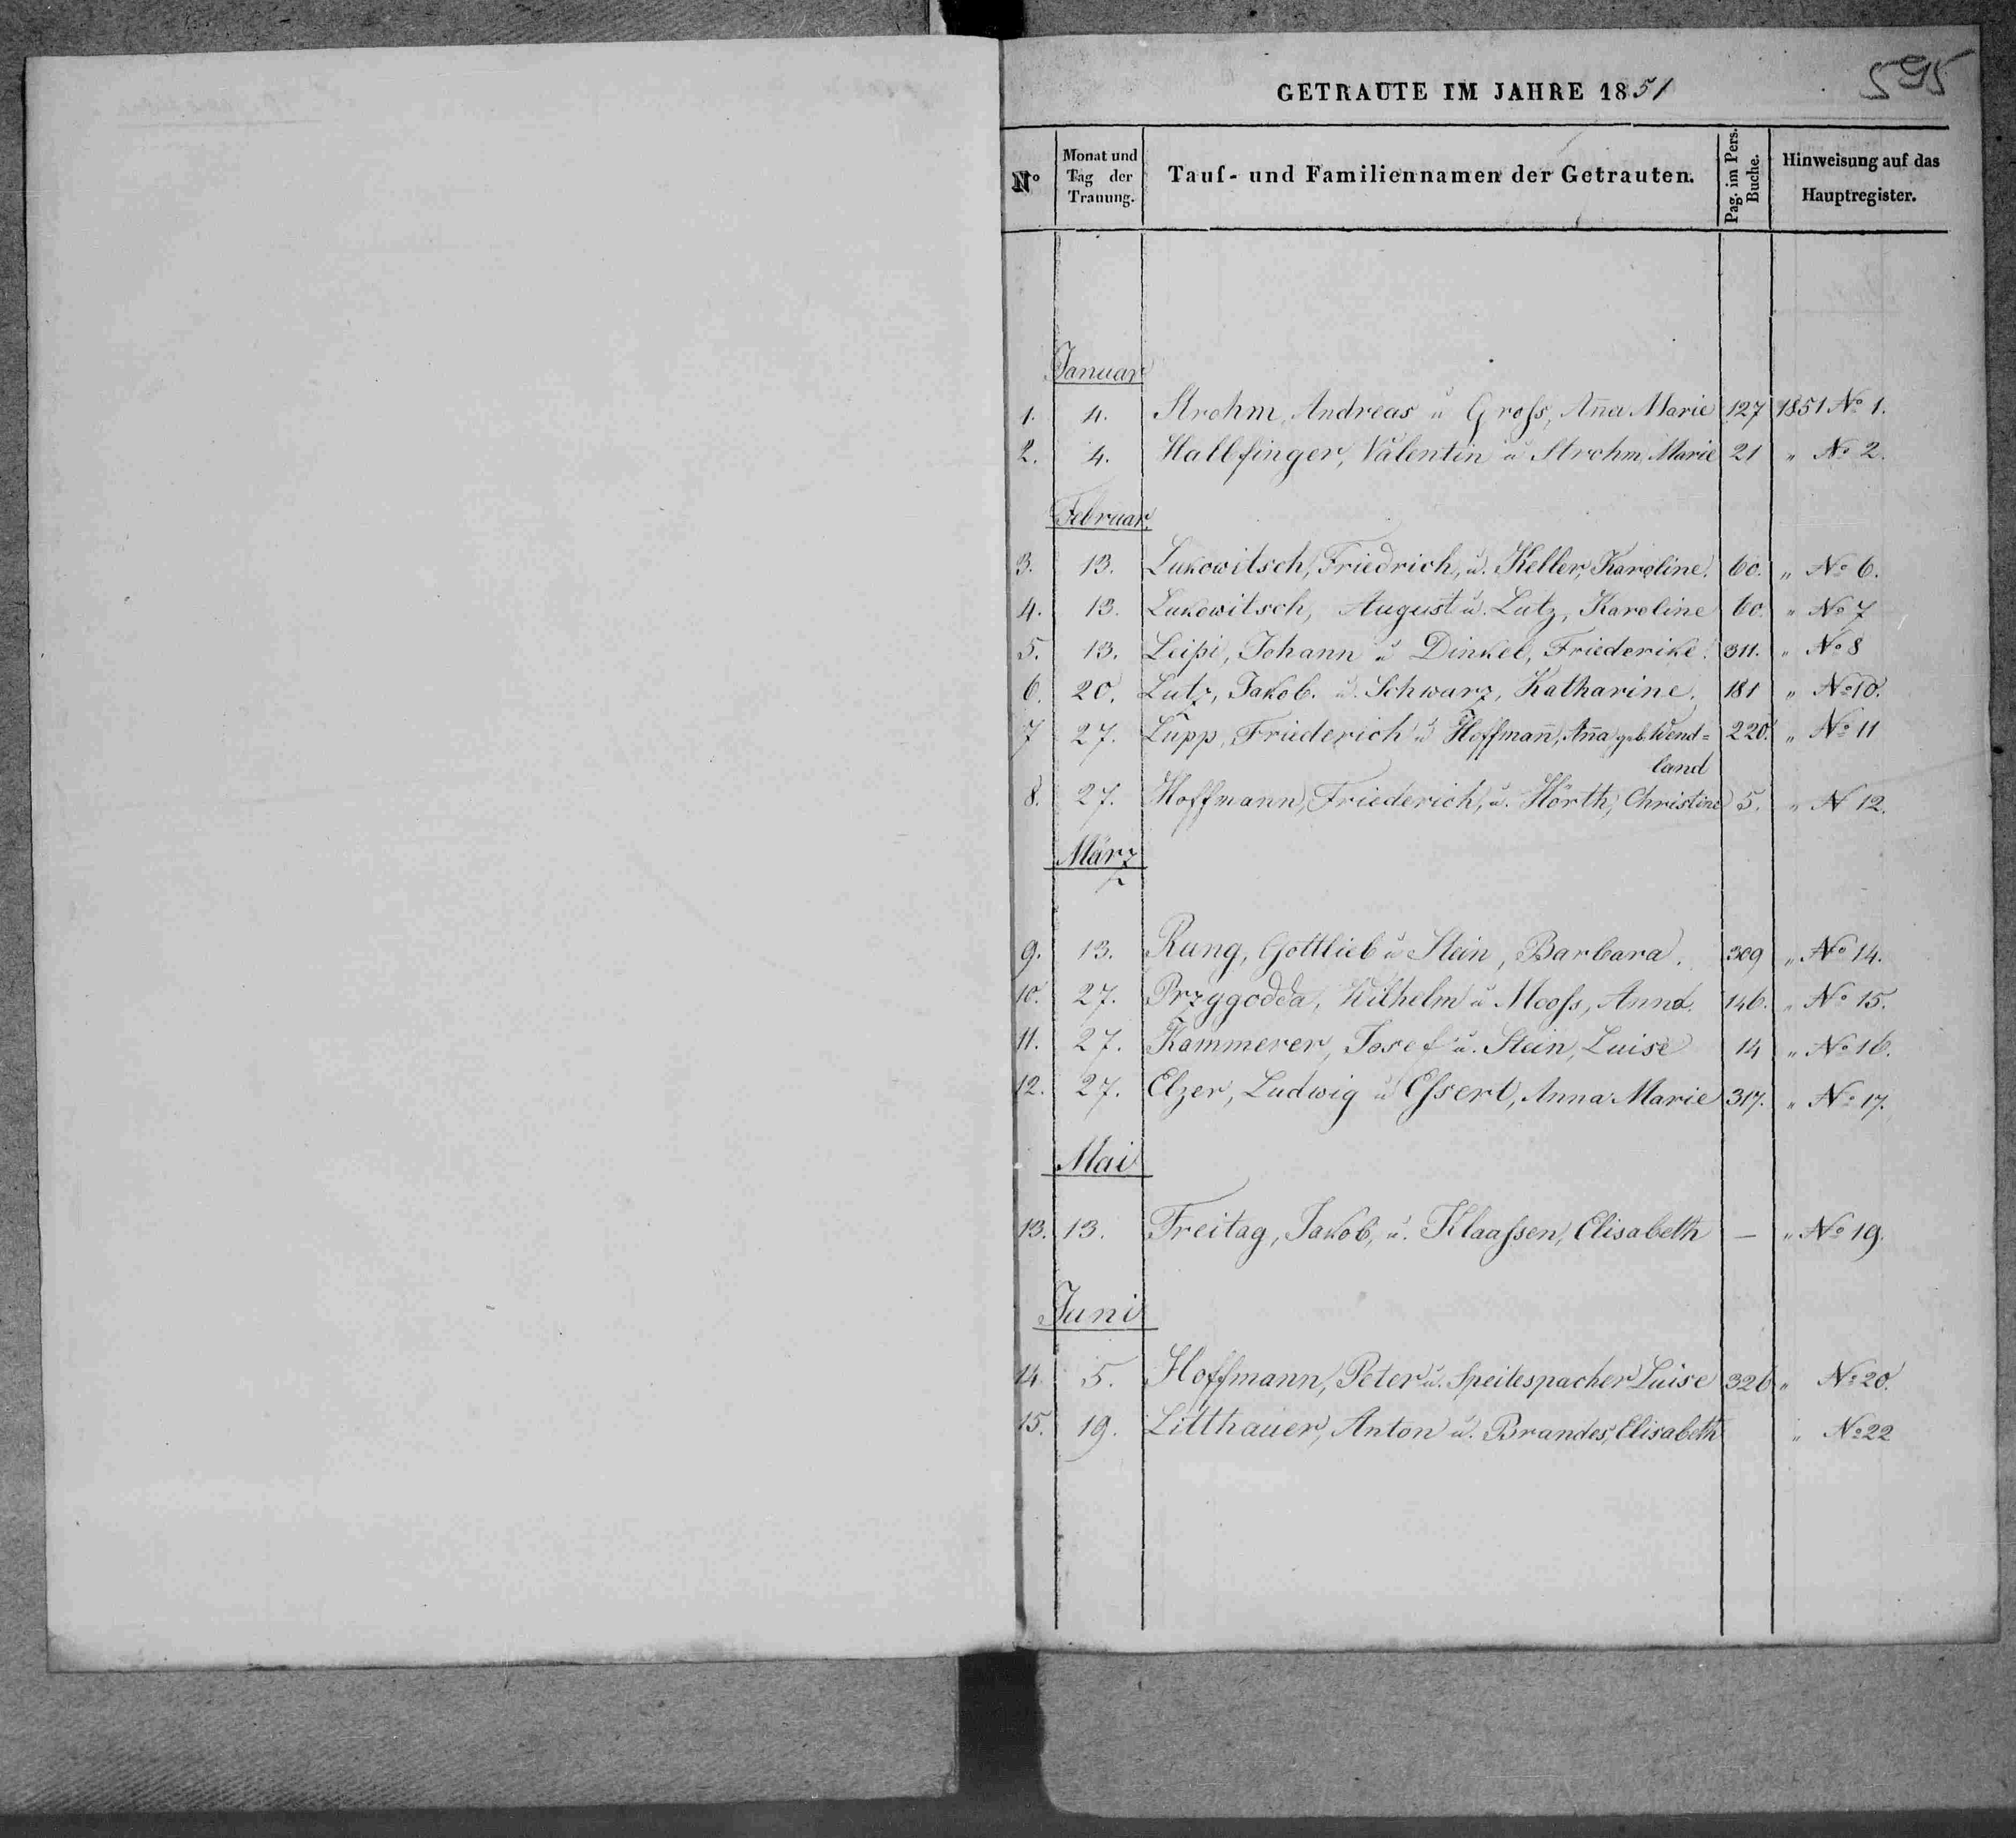 595
GETRAUTE IM JAHRE 1851
No Monat und Tag der Trauung. Tauf- und Familiennamen der Getrauten. Pag. im Pers. Buche. Hinweisung auf das Hauptregister.
Januar
1. 4. Strohm, Andreas u Groſs, Aña Marie 127 1851 No 1.
2. 4. Halbfinger, Valentin u Strohm, Marie 21 " No 2.
Februar
3. 13. Lukowitsch, Friedrich, u. Keller, Karoline. 60. " No 6.
4. 13. Lukowitsch, August u. Lutz, Karoline 60. " No 7
5. 13. Leipi, Johann u Dinkel, Friederike. 311. " No 8
6. 20. Lutz, Jakob. u. Schwarz, Katharine. 181 " No 10.
7 27. Lupp, Friederich u Hoffmañ, Aña geb. Wend= 220. " No 11
land
8. 27. Hoffmann, Friederich, u. Hörth, Christine 5. " N 12.
März
9. 13. Rung, Gottlieb u Stein, Barbara. 309 " No 14.
10. 27. Przygodda, Wilhelm u Mooſs, Anna. 146. " No 15.
11. 27. Kammerer, Josef u. Stein, Luise 14 " No 16.
12. 27. Elzer, Ludwig u Eſsert, Anna Marie 317. " No 17.
Mai
13. 13. Freitag, Jakob, u. Klaaſsen, Elisabeth — " No 19.
Juni
14 5. Hoffmann, Peter u. Speitespacher Luise 326 " No 20.
15. 19. Litthauer, Anton u. Brandes, Elisabeth " No 22